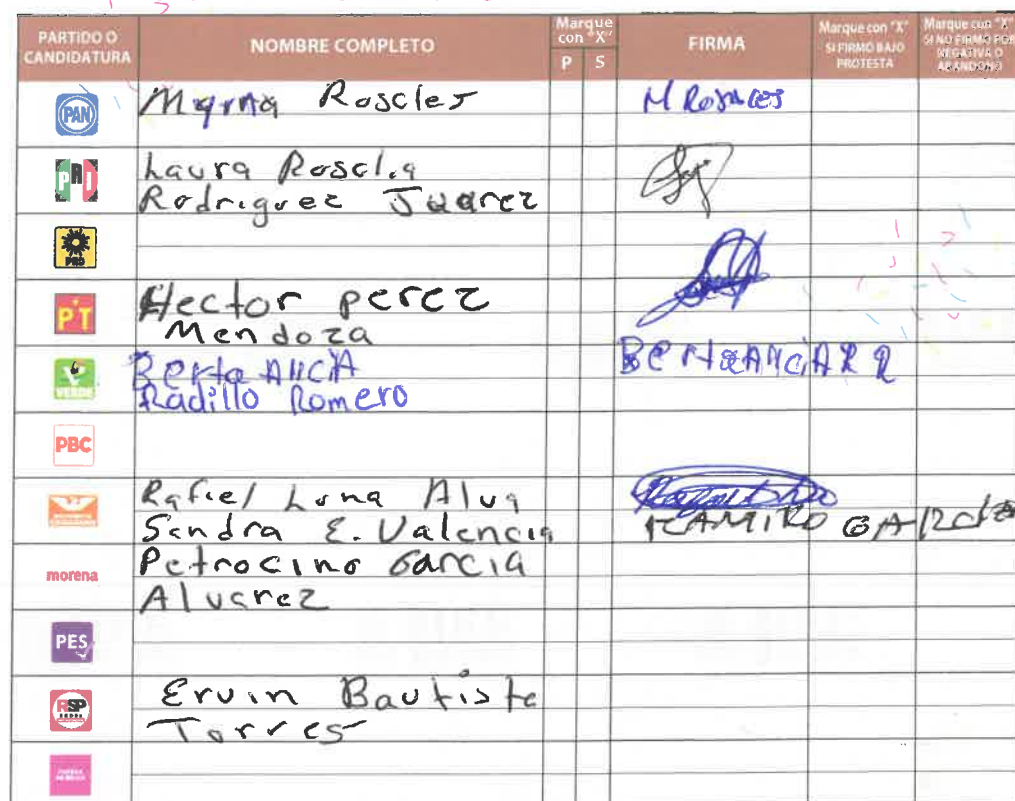 PARTIDO O CANDIDATURA
NOMBRE COMPLETO
Marque con "X"
P S
FIRMA
Marque con "X" SI FIRMÓ BAJO PROTESTA
Marque con "X" SI NO FIRMÓ POR NEGATIVA O ABANDONO
PAN
Myrna Roscles
M Rosales
PRI
Laura Rosclia
Rodriguez Juarez
PRD
PT
Hector perez
Mendoza
VERDE
Berta AliciA
Radillo Romero
BertaAliciARR
PBC
Rafael Luna Alva
Sandra E. Valencia
RAMIRO GARcia
morena
Petrocino Garcia
Alvarez
PES
RSP
Ervin Bautista
Torres